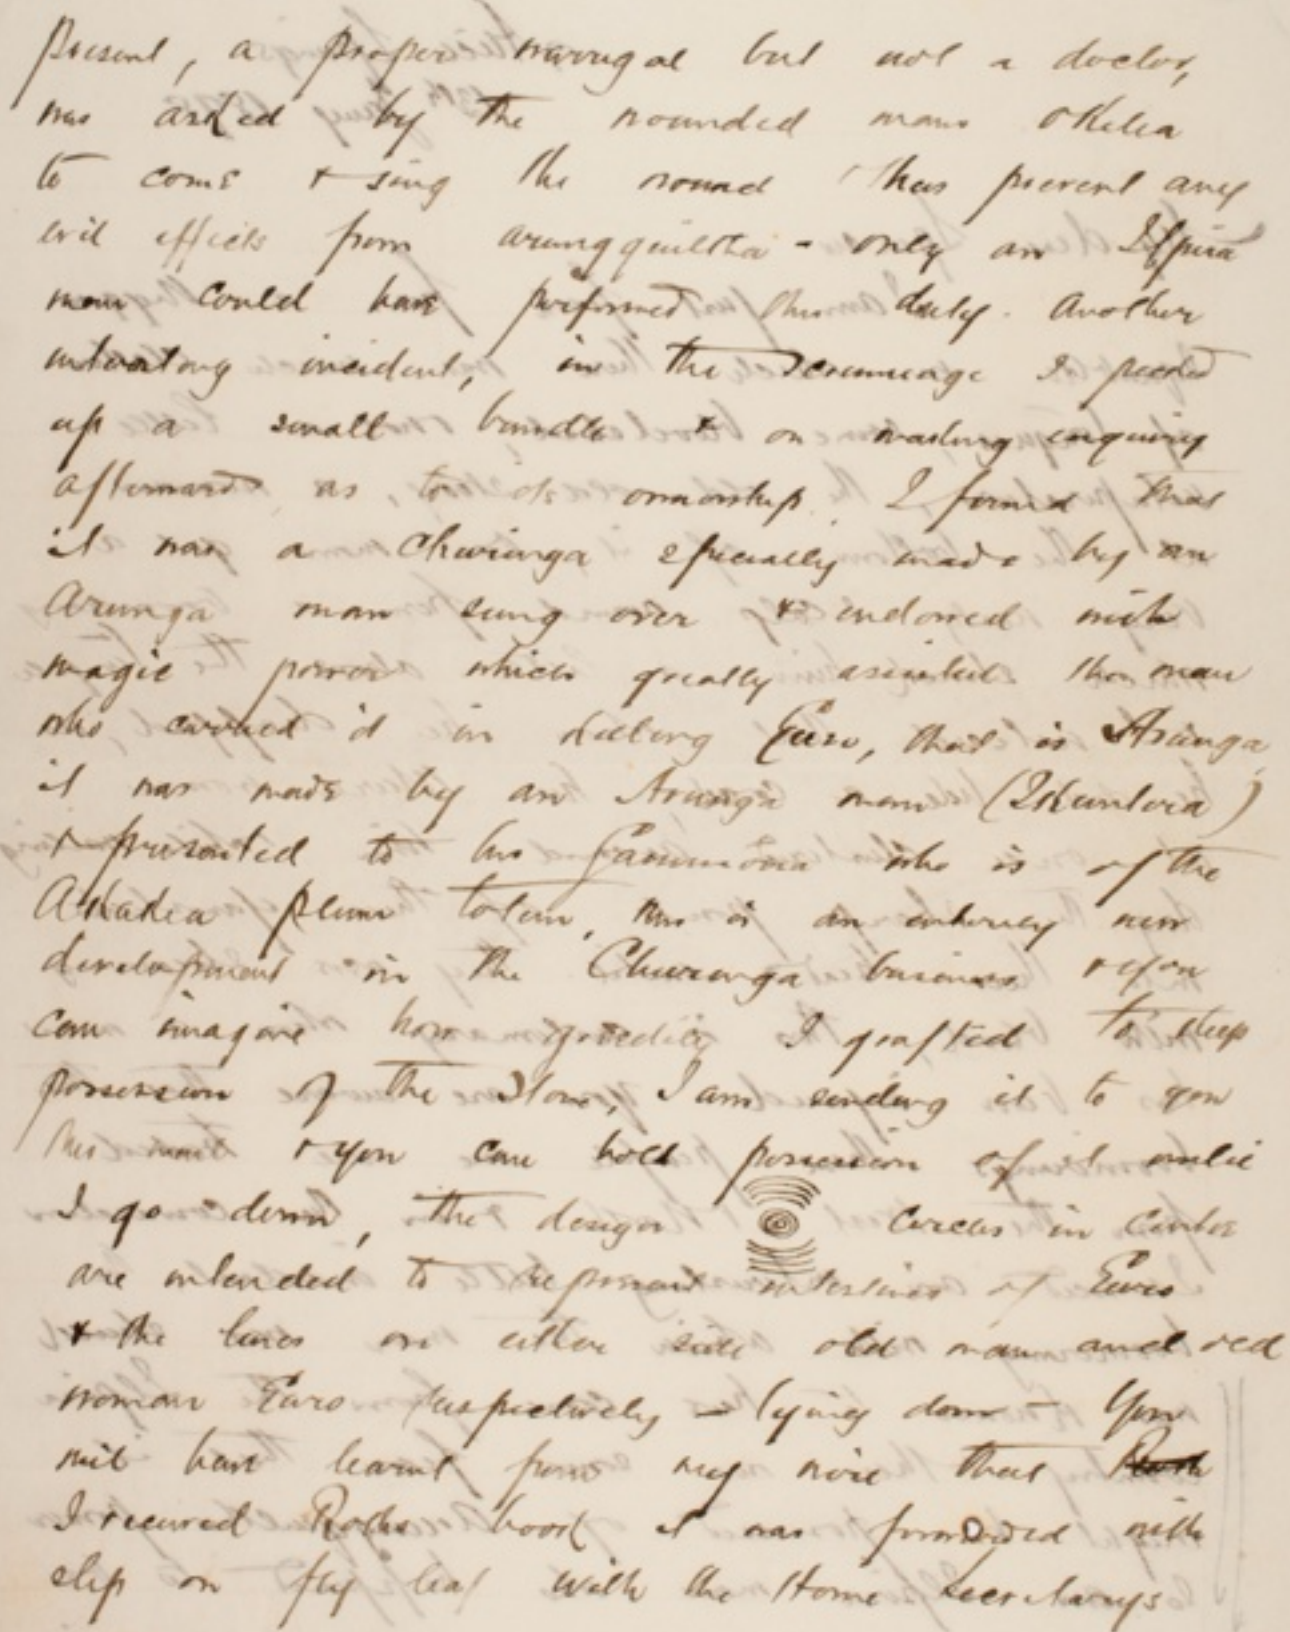 present, a proper nurugal but not a doctor,
was asked by the wounded mans Okilia
to come & sing the wound & thus prevent any
evil effects from arungquiltha - only an Ilpira
man could have performed this duty. Another
interesting incident, in the scrummage I picked
up a small bundle & on making enquiry
afterwards as to its ownership I found that
it was a Churinga specially made by an
Arunga man sung over & endowed with
magic power which greatly assisted the man
who carried it in killing Euro, that is Arunga,
it was made by an Arunga man (Ikuntera)
& presented to his Gammona who is of the
Akakia plum totem, this is an entirely new
development in the Churinga business & you
can imagine how greedily I grafted to
possession of the Stone, I am sending it to you
this mail & you can hold possession of it until
I go down, the design circles in center
are intended to represent intestines of Euro
& the lines on either side old man and
woman Euro respectively - lying down - You
will have learnt from my wire that
I received Roths book it was forwarded with
slip on fly leaf with the Home Secretarys